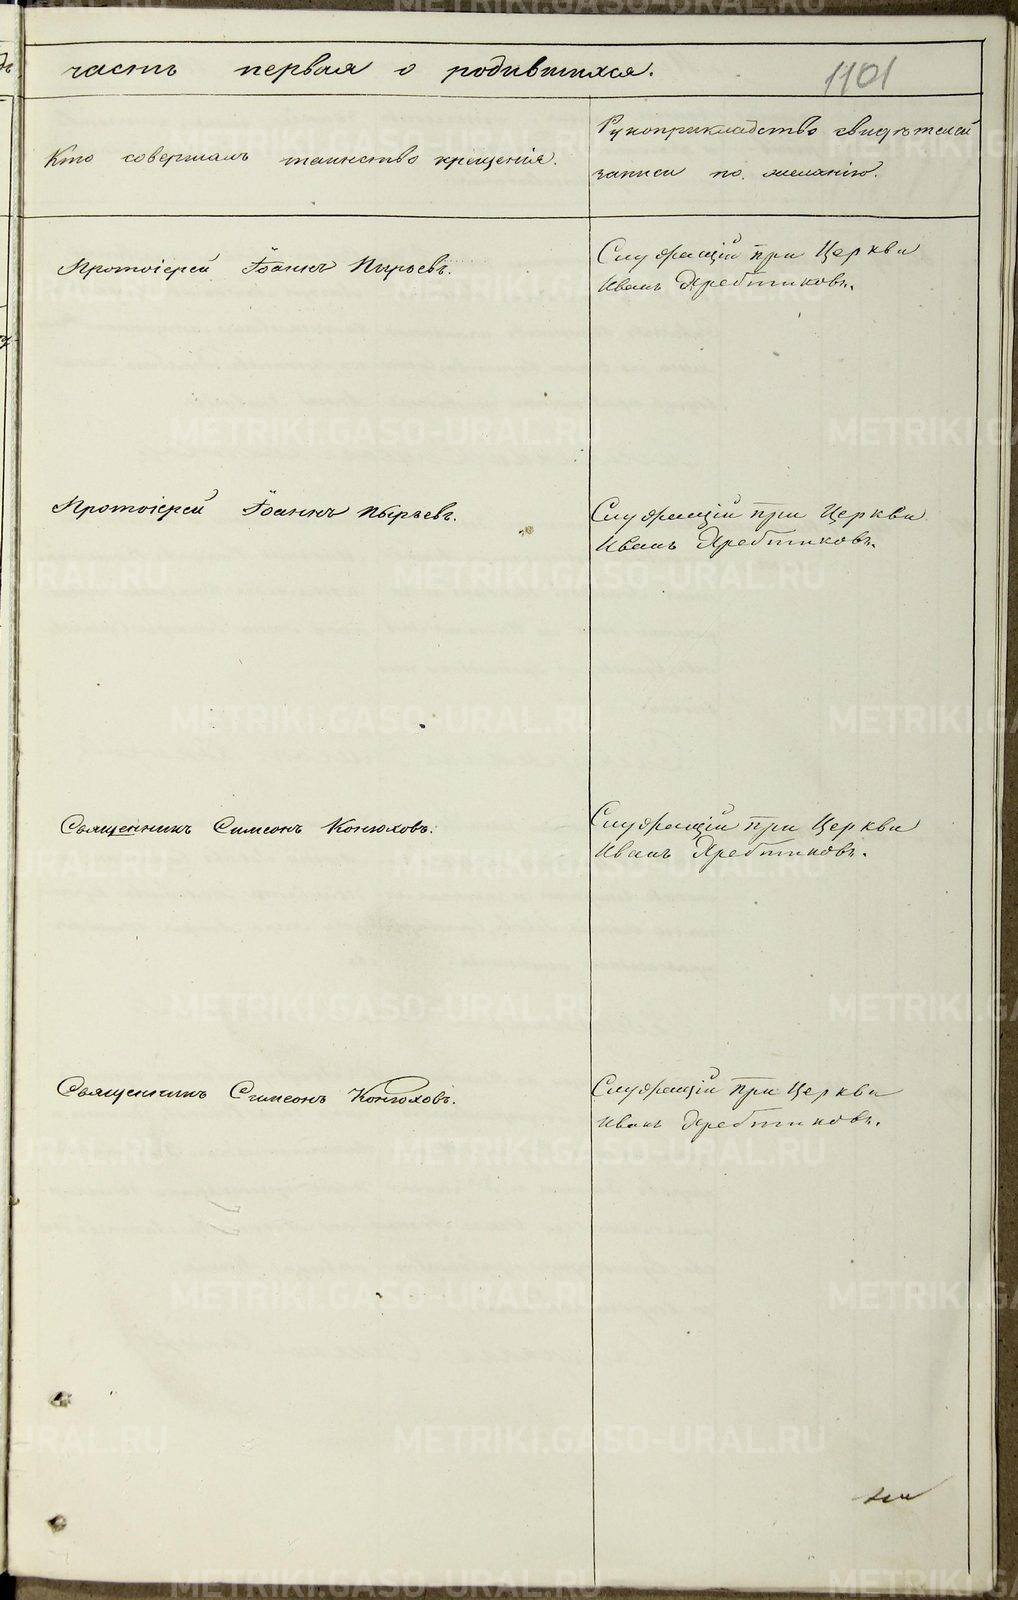 часть первая о родившихся.
1101
Кто совершалъ таинство крещенія.
Рукоприкладство свидѣтелей
записи по желанію.
Протоіерей Іоаннъ Пырьевъ.
Служащій при Церкви
Иванъ Яребтиковъ.
Протоіерей Іоаннъ Пырьевъ.
Служащій при Церкви
Иванъ Яребтиковъ.
Священникъ Симеонъ Конюховъ.
Служащій при Церкви
Иванъ Яребтиковъ.
Священникъ Симеонъ Конюховъ.
Служащій при Церкви
Иванъ Яребтиковъ.
METRIKI.GASO-URAL.RU